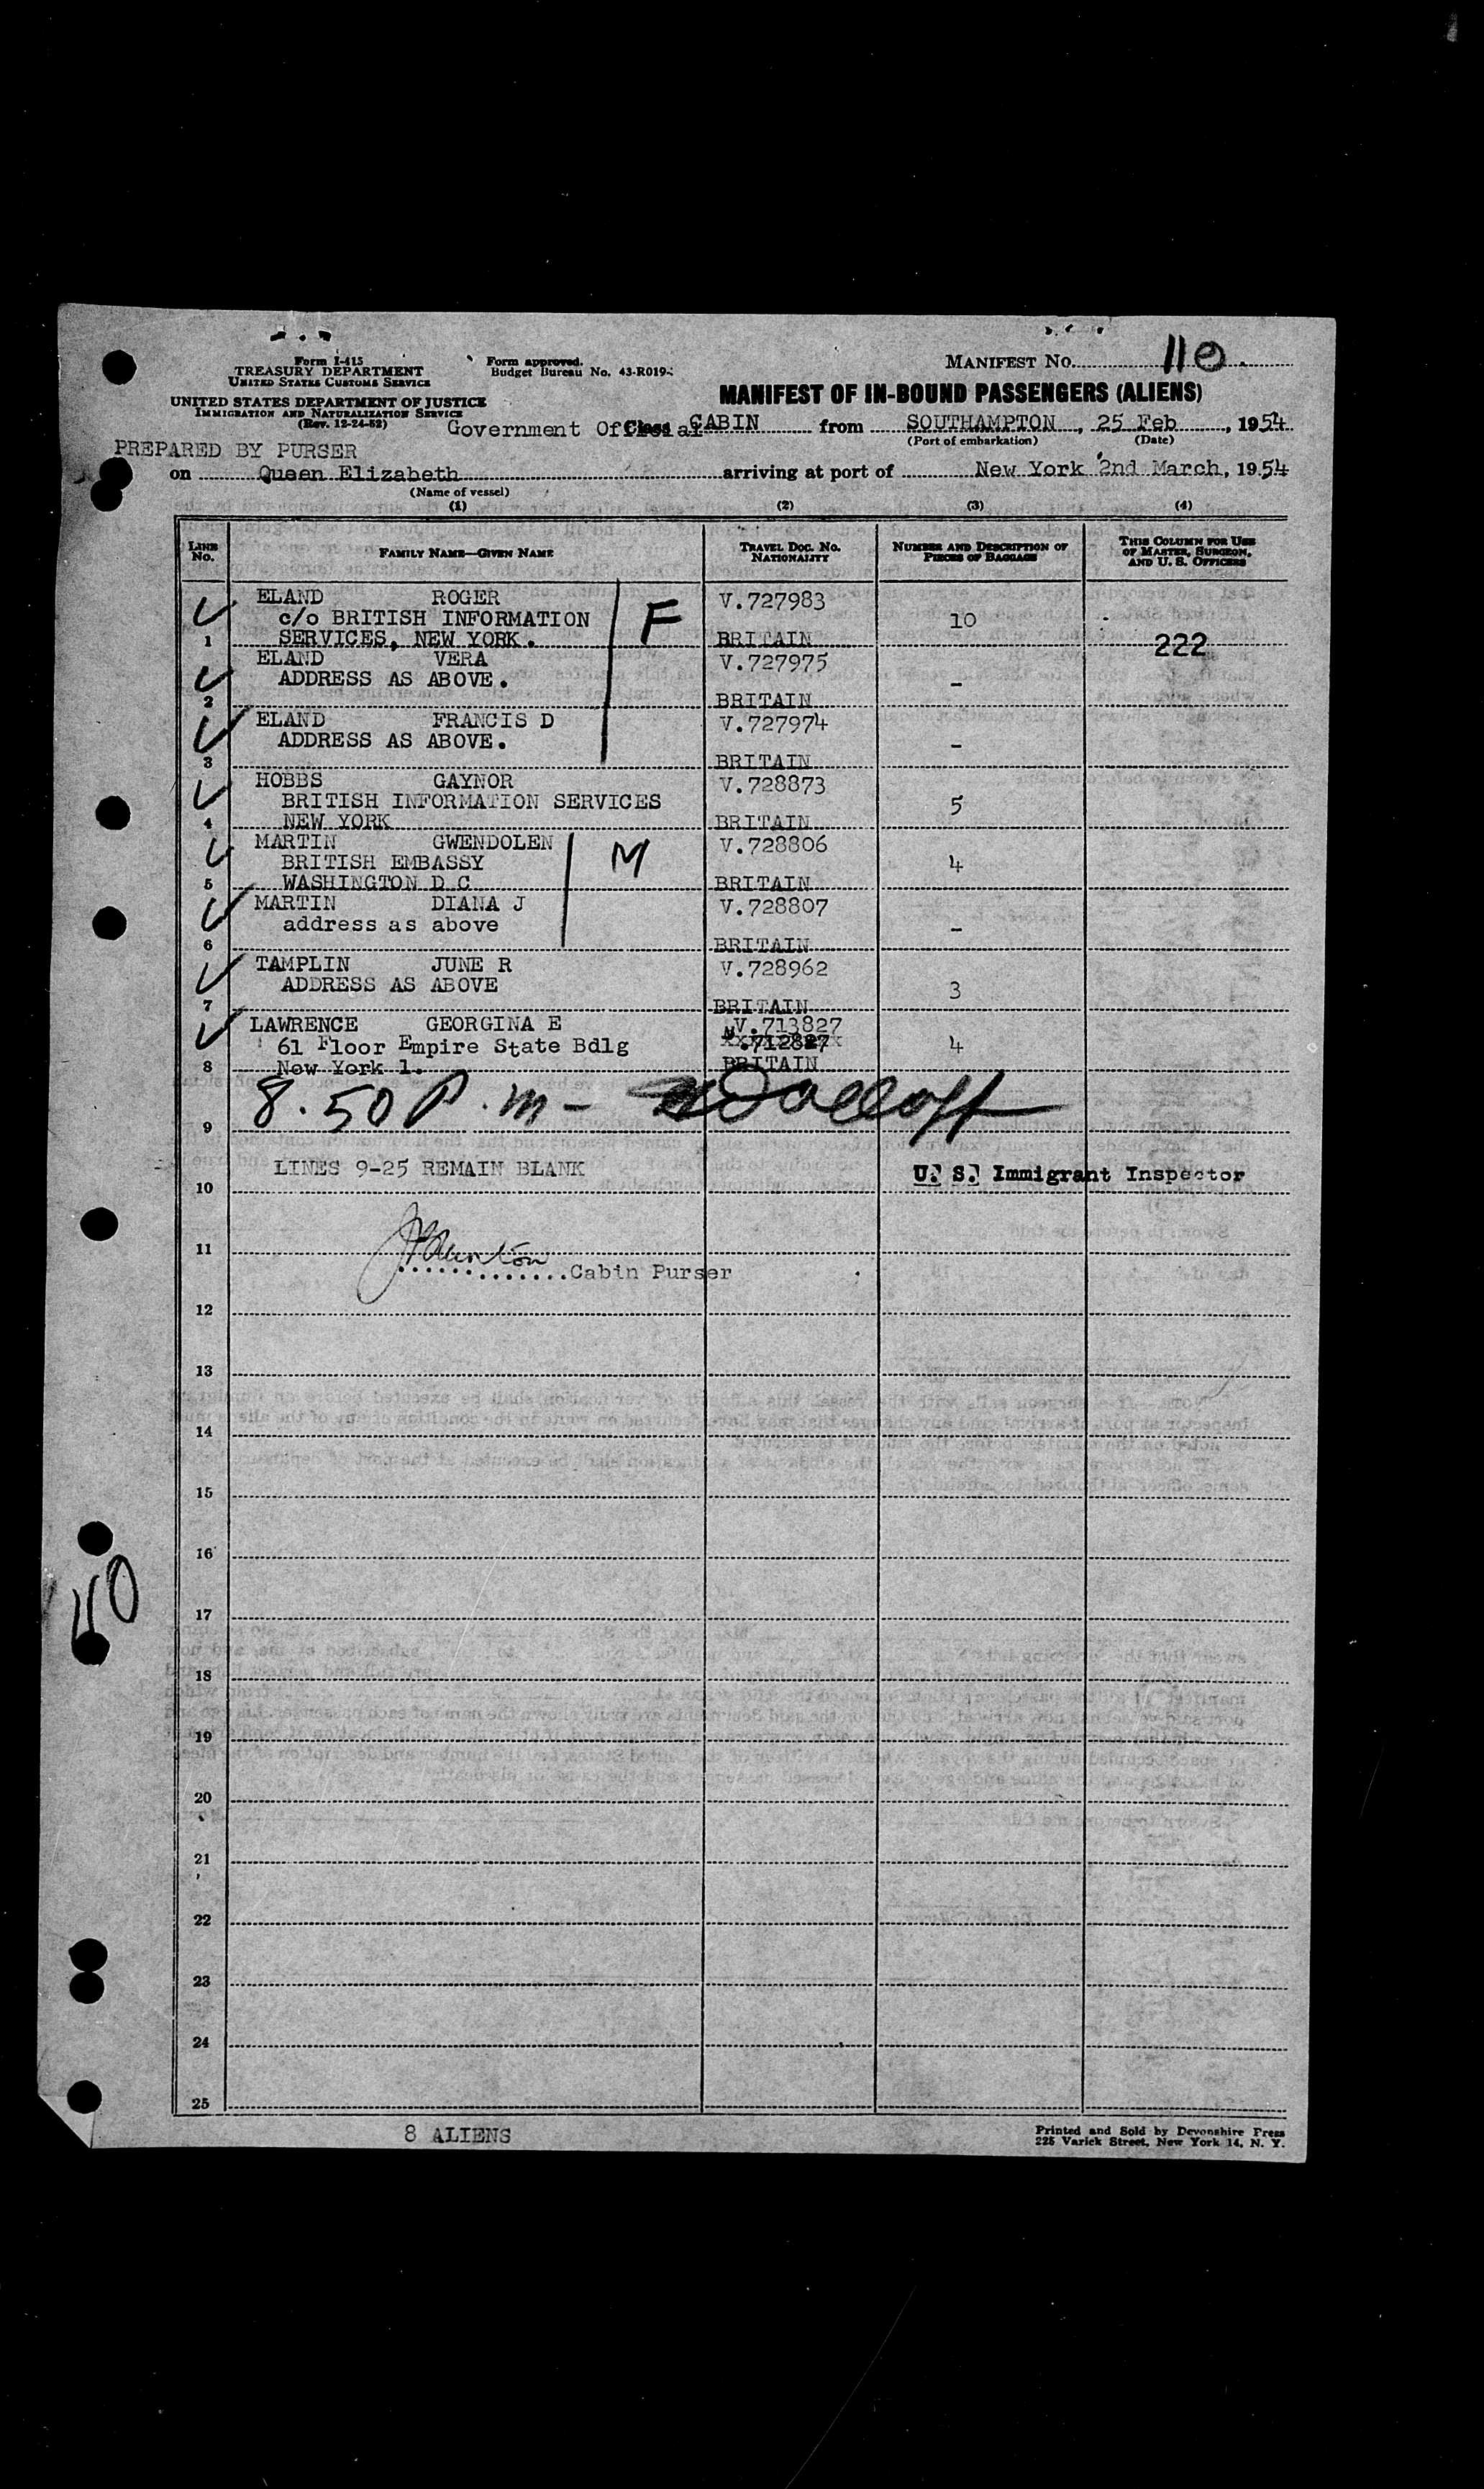 Form I-415
TREASURY DEPARTMENT
UNITED STATES CUSTOMS SERVICE
UNITED STATES DEPARTMENT OF JUSTICE
IMMIGRATION AND NATURALIZATION SERVICE
(Rev. 12-24-52)
Form approved.
Budget Bureau No. 43-R019-
MANIFEST NO. 110
MANIFEST OF IN-BOUND PASSENGERS (ALIENS)
Government Official Class CABIN from SOUTHAMPTON, 25 Feb, 1954
(Port of embarkation) (Date)
PREPARED BY PURSER
on Queen Elizabeth arriving at port of New York 2nd March, 1954
(Name of vessel)
(1) (2) (3) (4)
LINE NO. FAMILY NAME—GIVEN NAME TRAVEL DOC. NO. NATIONALITY NUMBER AND DESCRIPTION OF PIECES OF BAGGAGE THIS COLUMN FOR USE OF MASTER, SURGEON, AND U. S. OFFICERS
ELAND ROGER V.727983
c/o BRITISH INFORMATION F 10
1 SERVICES, NEW YORK. BRITAIN 222
ELAND VERA V.727975
ADDRESS AS ABOVE. -
2 BRITAIN
ELAND FRANCIS D V.727974
ADDRESS AS ABOVE. -
3 BRITAIN
HOBBS GAYNOR V.728873
BRITISH INFORMATION SERVICES 5
4 NEW YORK BRITAIN
MARTIN GWENDOLEN V.728806
BRITISH EMBASSY M 4
5 WASHINGTON D C BRITAIN
MARTIN DIANA J V.728807
address as above -
6 BRITAIN
TAMPLIN JUNE R V.728962
ADDRESS AS ABOVE 3
7 BRITAIN
LAWRENCE GEORGINA E V.713827
61 Floor Empire State Bdlg 4
8 New York 1. BRITAIN
8.50 P.m -
9
LINES 9-25 REMAIN BLANK U. S. Immigrant Inspector
10
11
Cabin Purser
12
13
14
15
16
17
110
18
19
20
21
22
23
24
25
8 ALIENS
Printed and Sold by Devonshire Press
225 Varick Street, New York 14, N. Y.